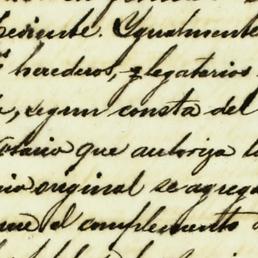 pediente. Ygualmente
herederos, y legatarios
, segun consta del
Notario que autoriza la
nio original se agrega
que el complemento d